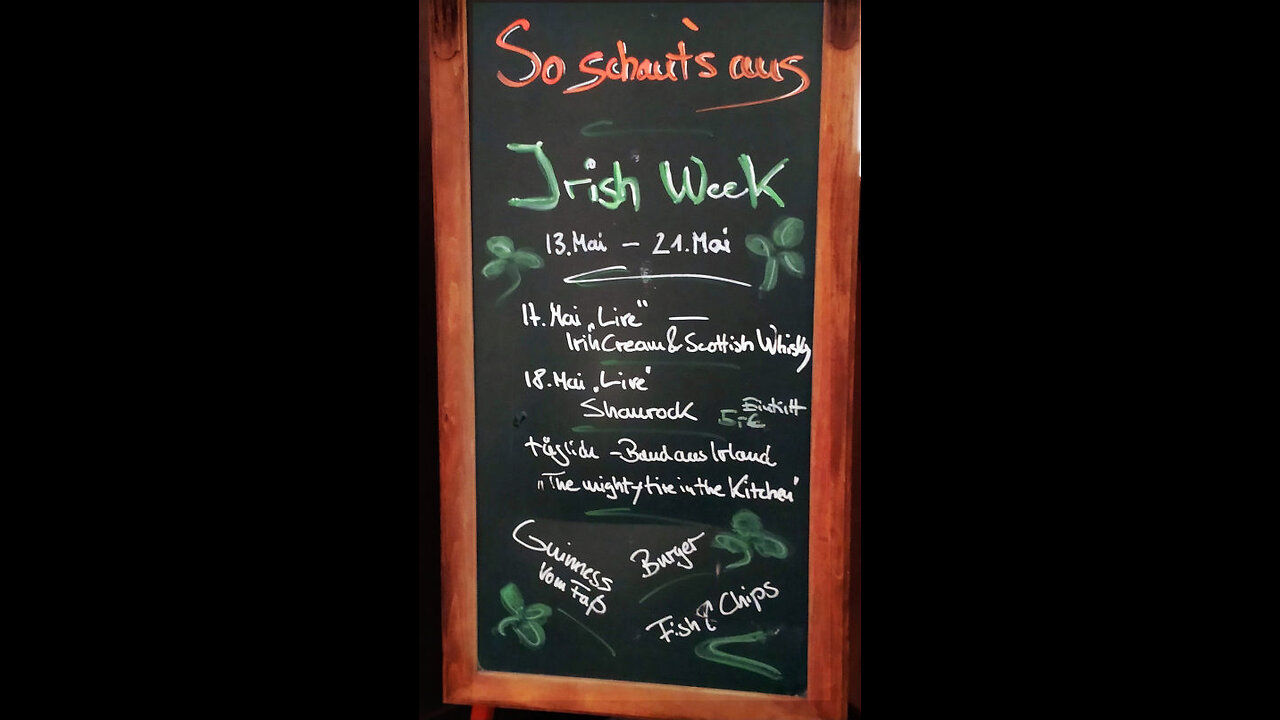 So schaut's aus
Irish Week
13. Mai – 21. Mai
17. Mai „Live" —
Irish Cream & Scottish Whisky
18. Mai „Live"
Shamrock
Eintritt
5,-€
täglich - Band aus Irland
„The mighty fire in the Kitchen"
Guinness
vom Faß
Burger
Fish & Chips